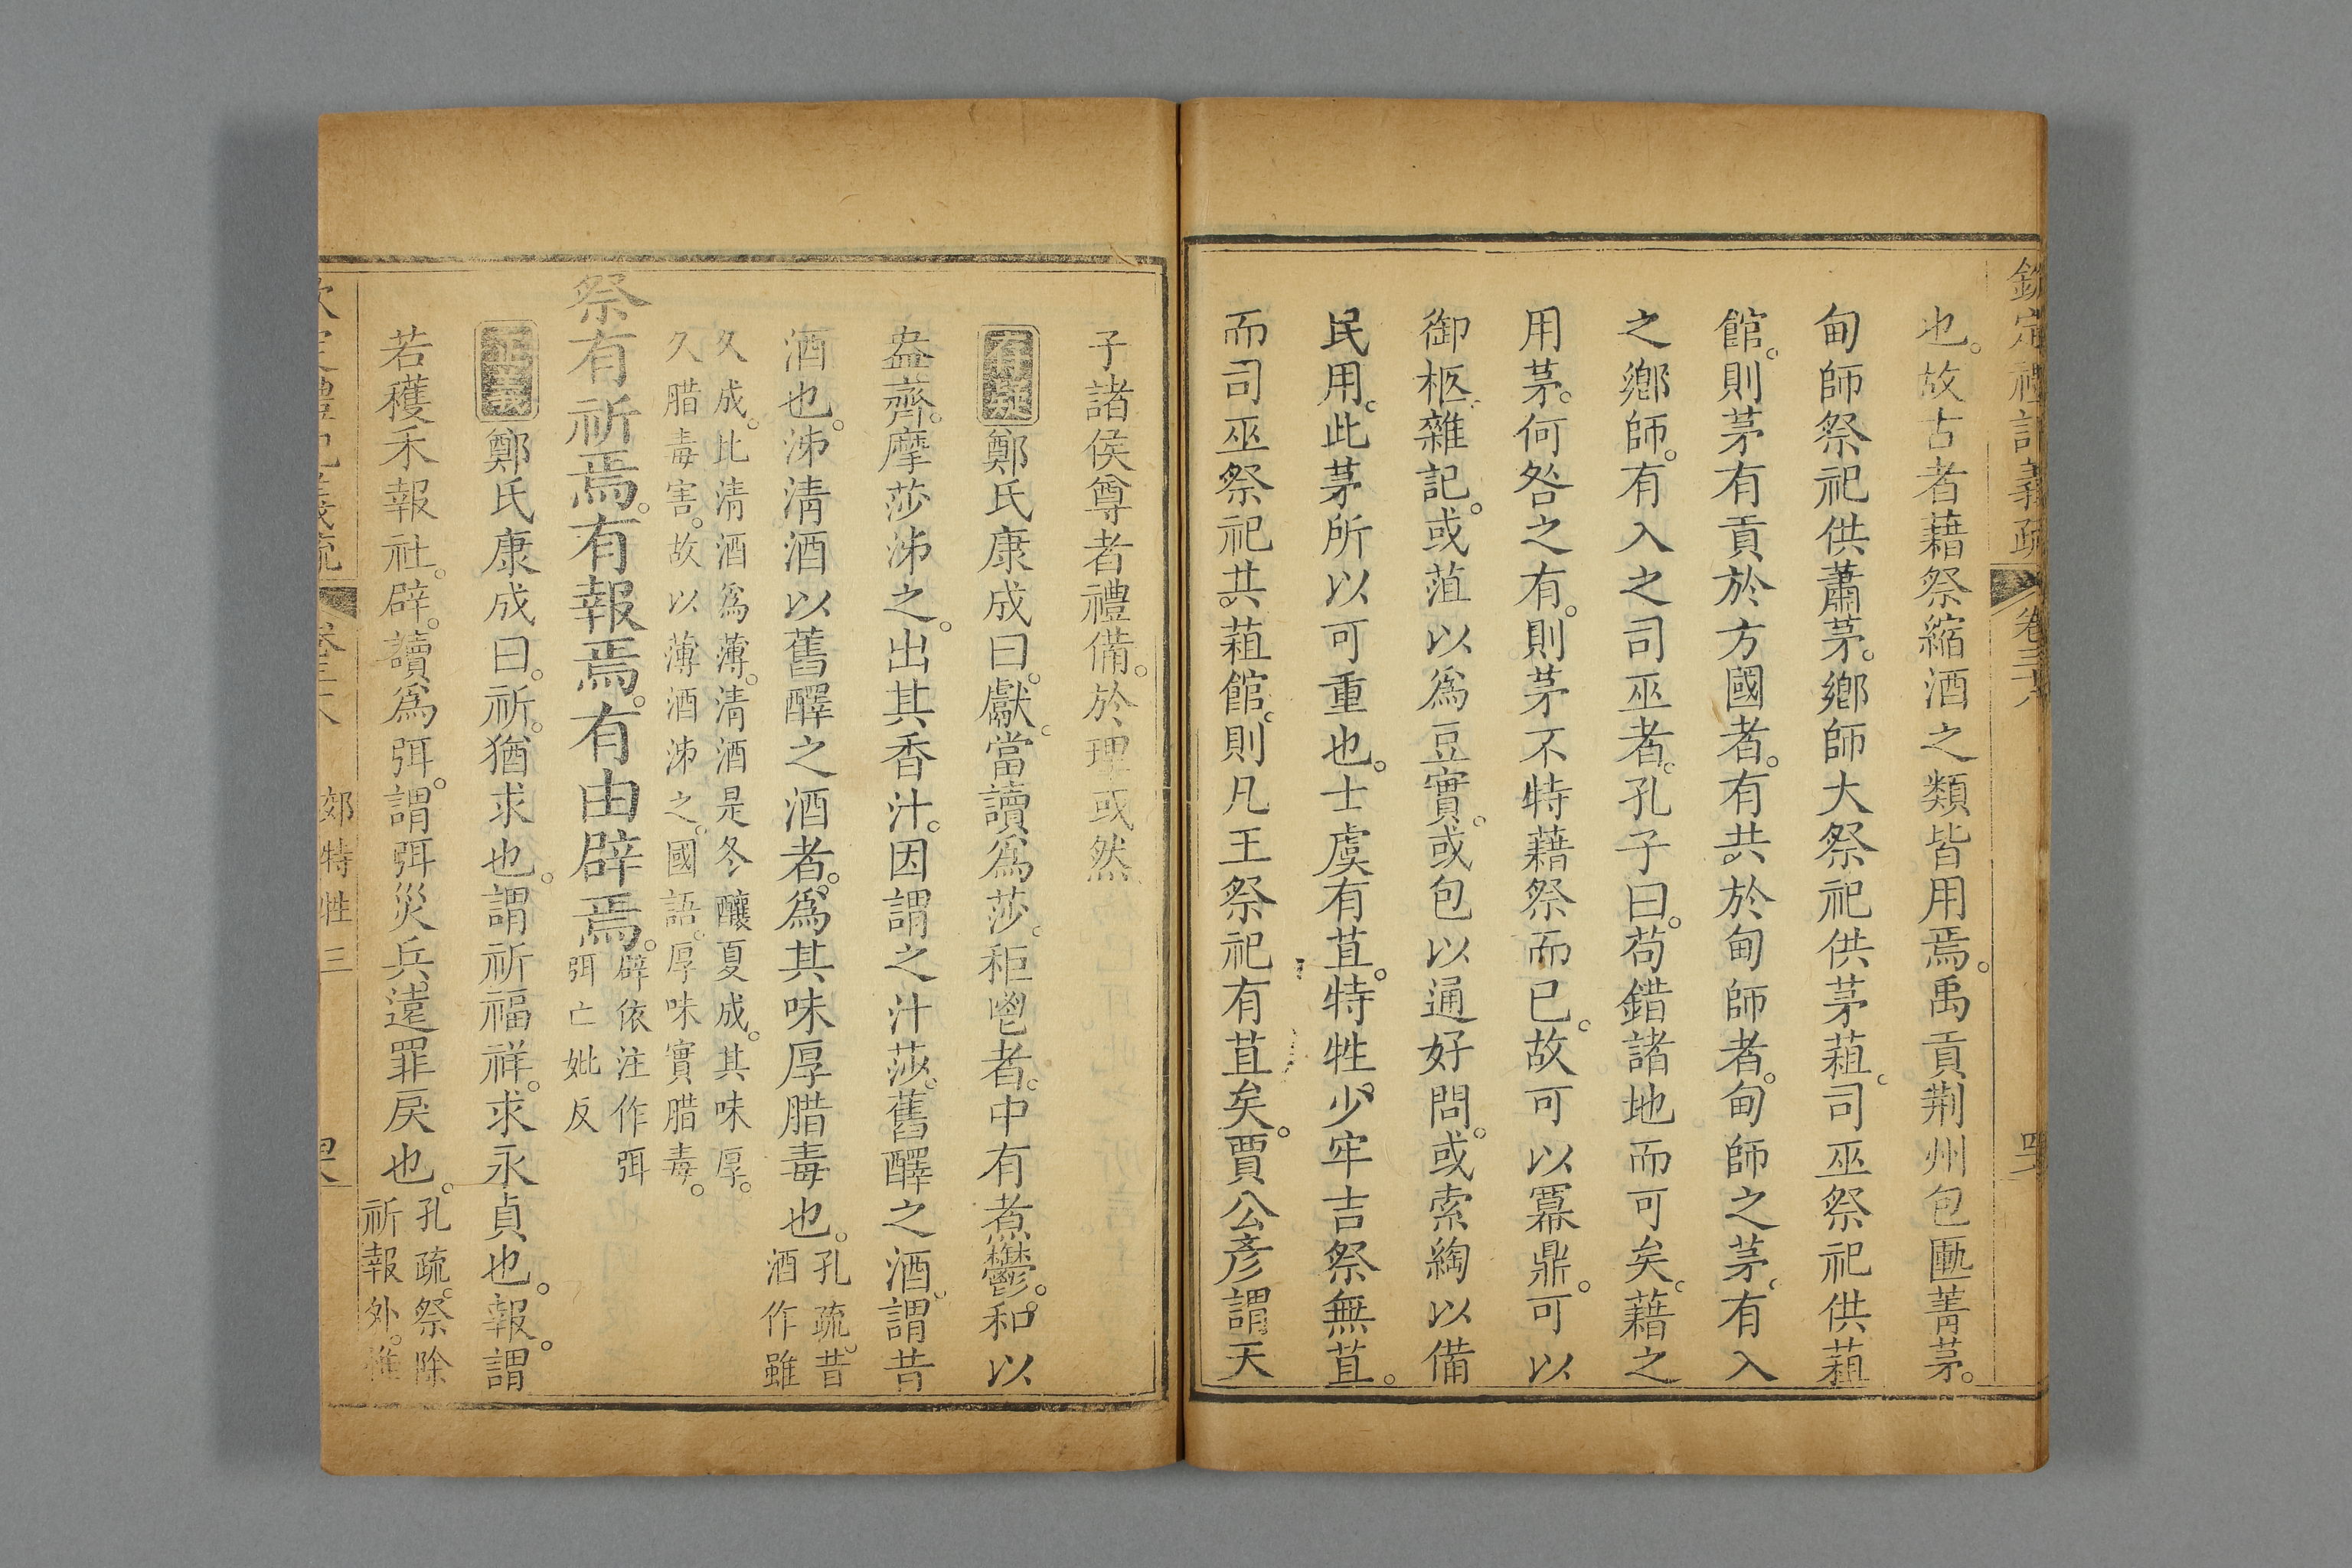 欽定禮記義疏 卷三十六
也。故古者藉祭縮酒之類皆用焉。禹貢荆州包匭菁茅。
甸師祭祀供蕭茅。鄉師大祭祀供茅蒩。司巫祭祀供蒩
館。則茅有貢於方國者。有共於甸師者。甸師之茅。有入
之鄉師。有入之司巫者。孔子曰。苟錯諸地而可矣。藉之
用茅。何咎之有。則茅不特藉祭而已。故可以冪鼎。可以
御柩。雜記。或菹以為豆實。或包以通好問。或索綯以備
民用。此茅所以可重也。士虞有苴。特牲少牢吉祭無苴。
而司巫祭祀共蒩館。則凡王祭祀有苴矣。賈公彥謂天
子諸侯尊者禮備。於理或然
存疑 鄭氏康成曰。獻。當讀爲莎。秬鬯者。中有煮鬱。和以
盎齊。摩莎泲之。出其香汁。因謂之汁莎。舊醳之酒。謂昔
酒也。泲清酒以舊醳之酒者。爲其味厚腊毒也。孔疏。昔
酒作雖
久成。比清酒爲薄。清酒是冬釀夏成。其味厚。
久腊毒害。故以薄酒泲之。國語。厚味實腊毒。
祭有祈焉。有報焉。有由辟焉。辟依注作弭
弭亡妣反
正義 鄭氏康成曰。祈。猶求也。謂祈福祥。求永貞也。報。謂
若穫禾報社。辟。讀爲弭。謂弭災兵。遠罪戾也。孔疏。祭除
祈報外。惟
郊特牲三